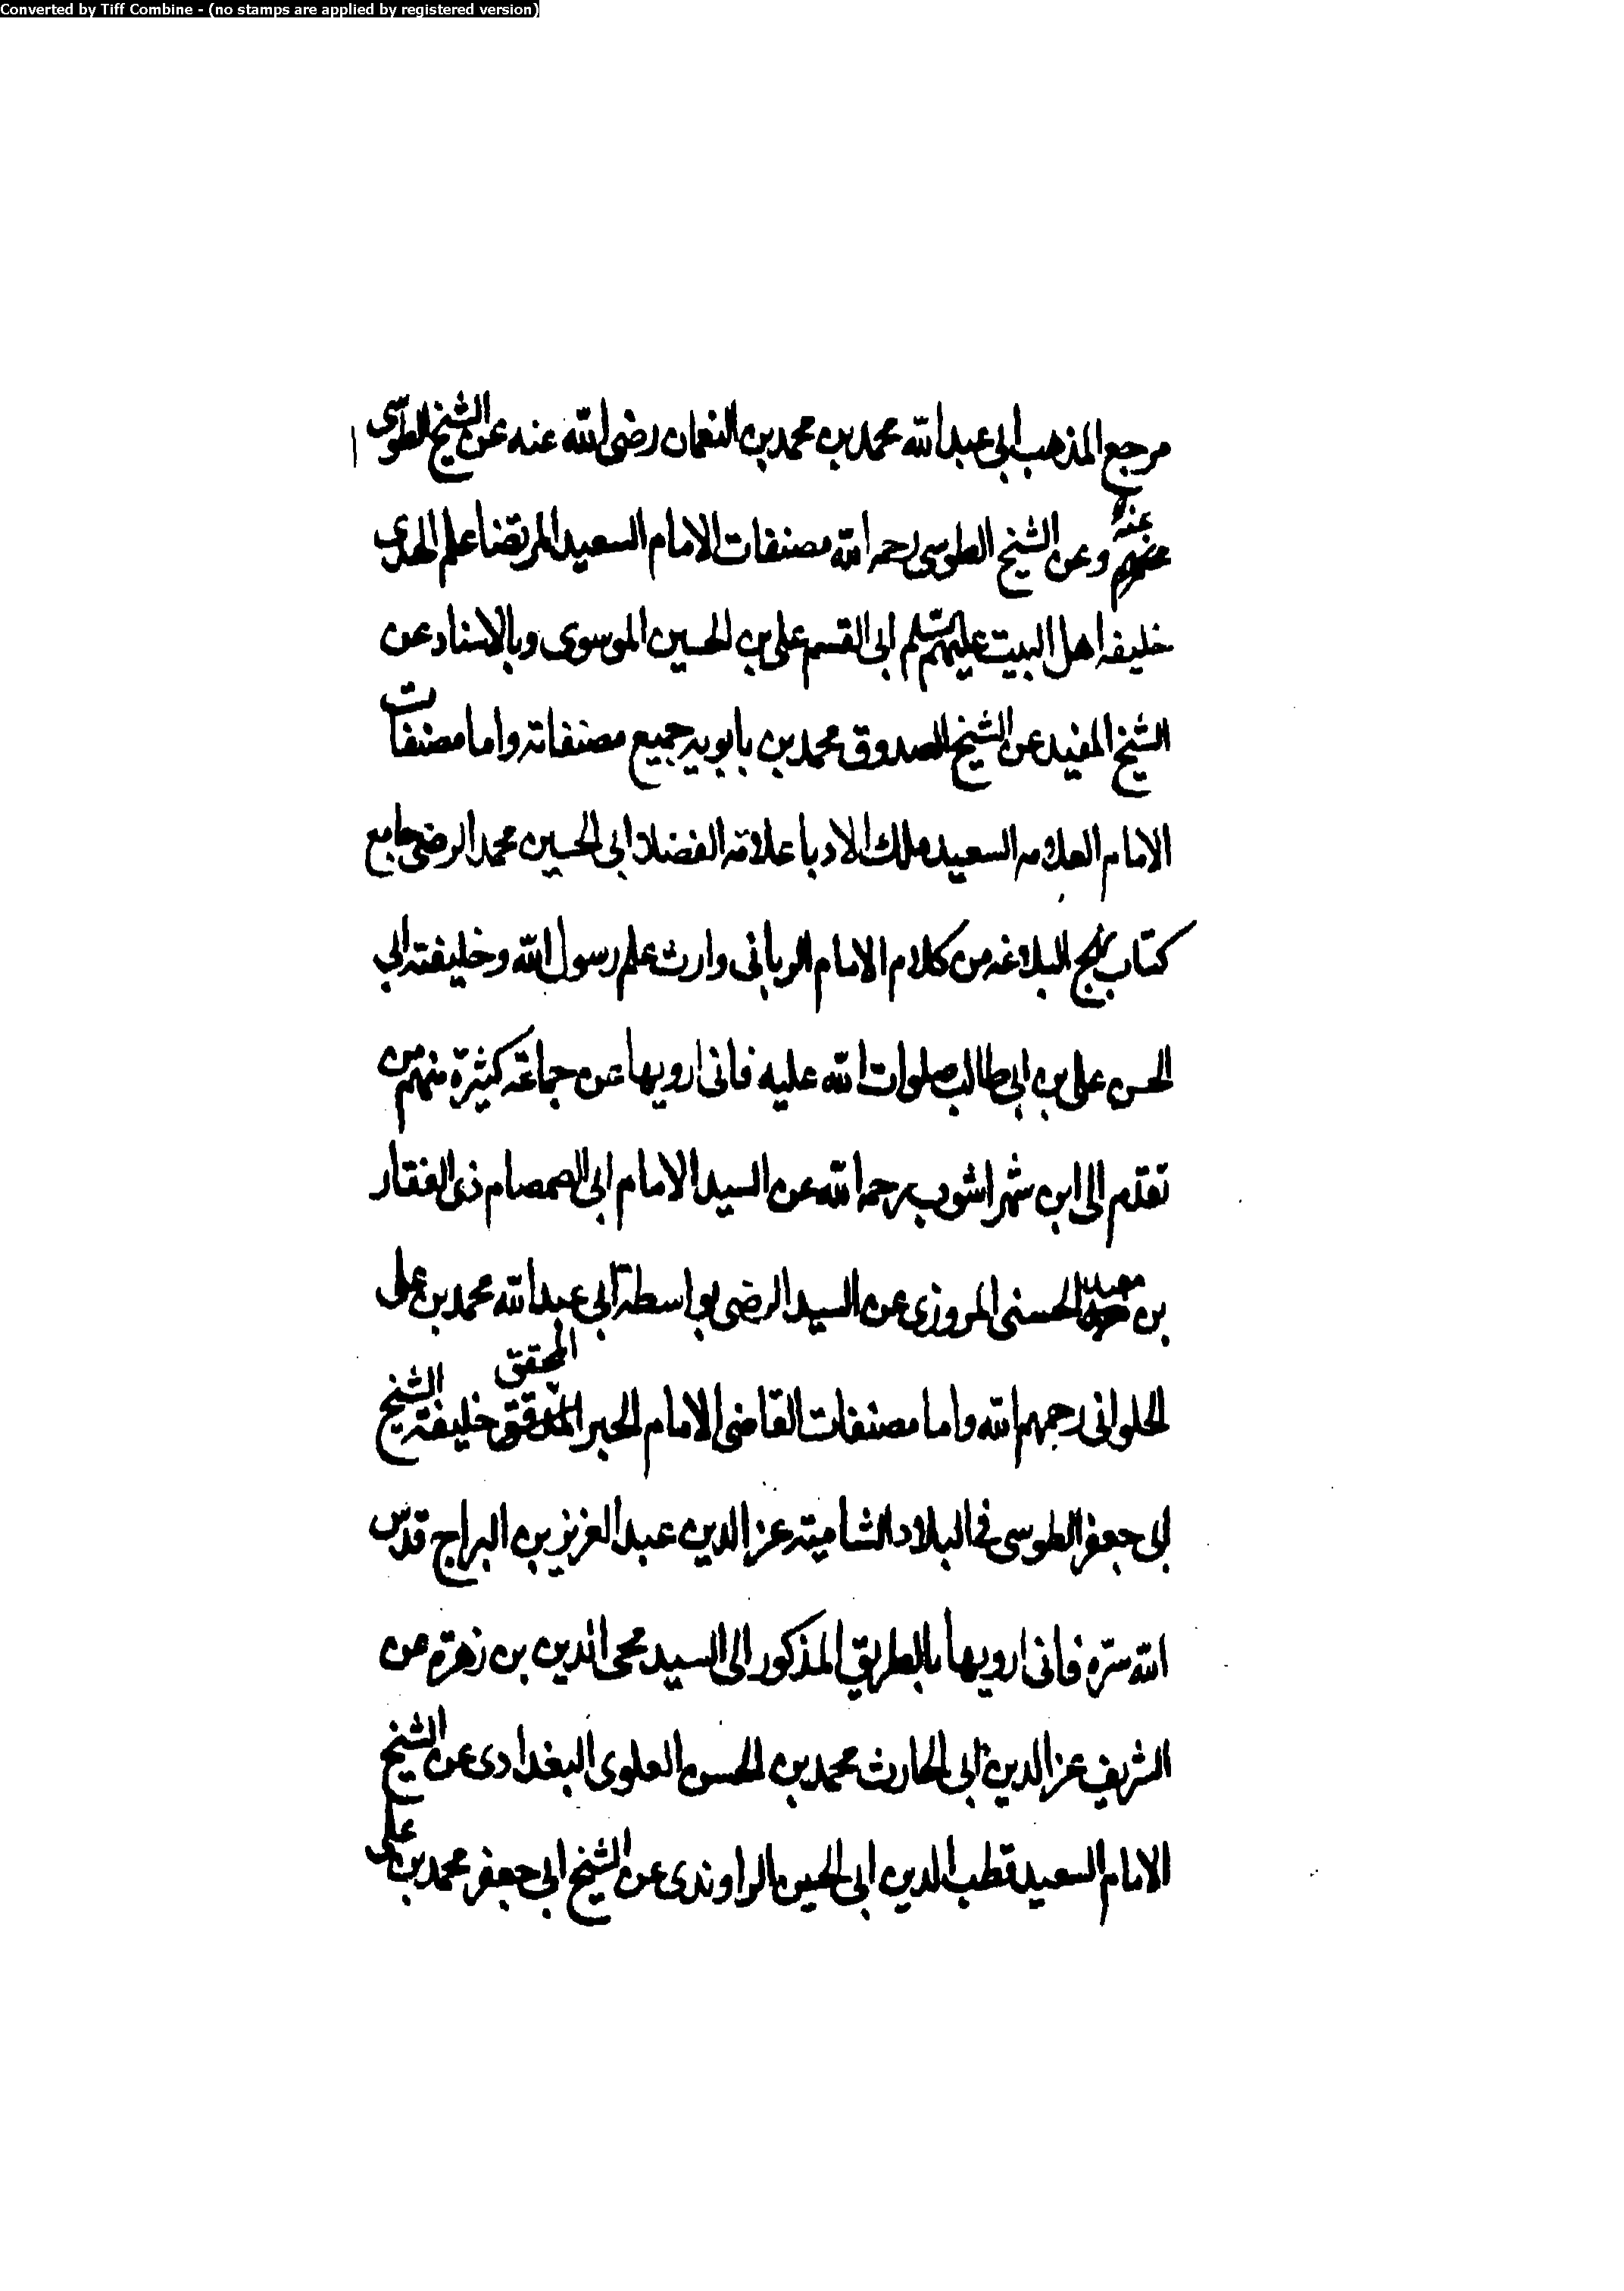 Converted by Tiff Combine - (no stamps are applied by registered version)
مرجع المذهب ابى عبد الله محمد بن محمد بن النعمان رضى الله عنه عن الشيخ الطوسى
عنه وعن الشيخ الطوسى رحمه الله مصنفات الامام السعيد المرتضا علم الهدى
خليفه اهل البيت عليهم السلم ابى القسم على بن الحسين الموسوى وبالاسناد عن
الشيخ المفيد عن الشيخ الصدوق محمد بن بابويه جميع مصنفاته واما مصنفات
الامام العلامه السعيد ملك الادبا علامة الفضلا ابى الحسين محمد الرضى جامع
كتاب نهج البلاغه من كلام الامام الربانى وارث علم رسول الله وخليفته ابى
الحسن على بن ابى طالب صلوات الله عليه فانى ارويها عن جماعة كثيرة منهم من
تقدم الى ابن شهراشوب رحمه الله عن السيد الامام ابى الصمصام ذى الفقار
بن معبد الحسنى المروزى عن السيد الرضى بواسطة ابى عبد الله محمد بن على
الحلوانى رحمهم الله واما مصنفات القاضى الامام الحبر المحقق خليفة الشيخ
ابى جعفر الطوسى فى البلاد الشامية عز الدين عبد العزيز بن البراج قدس
الله سره فانى ارويها بالطريق المذكور الى السيد محى الدين بن زهرة عن
الشريف عز الدين ابى الحارث محمد بن الحسن العلوى البغدادى عن الشيخ
الامام السعيد قطب الدين ابى الحسين الراوندى عن الشيخ ابى جعفر محمد بن على